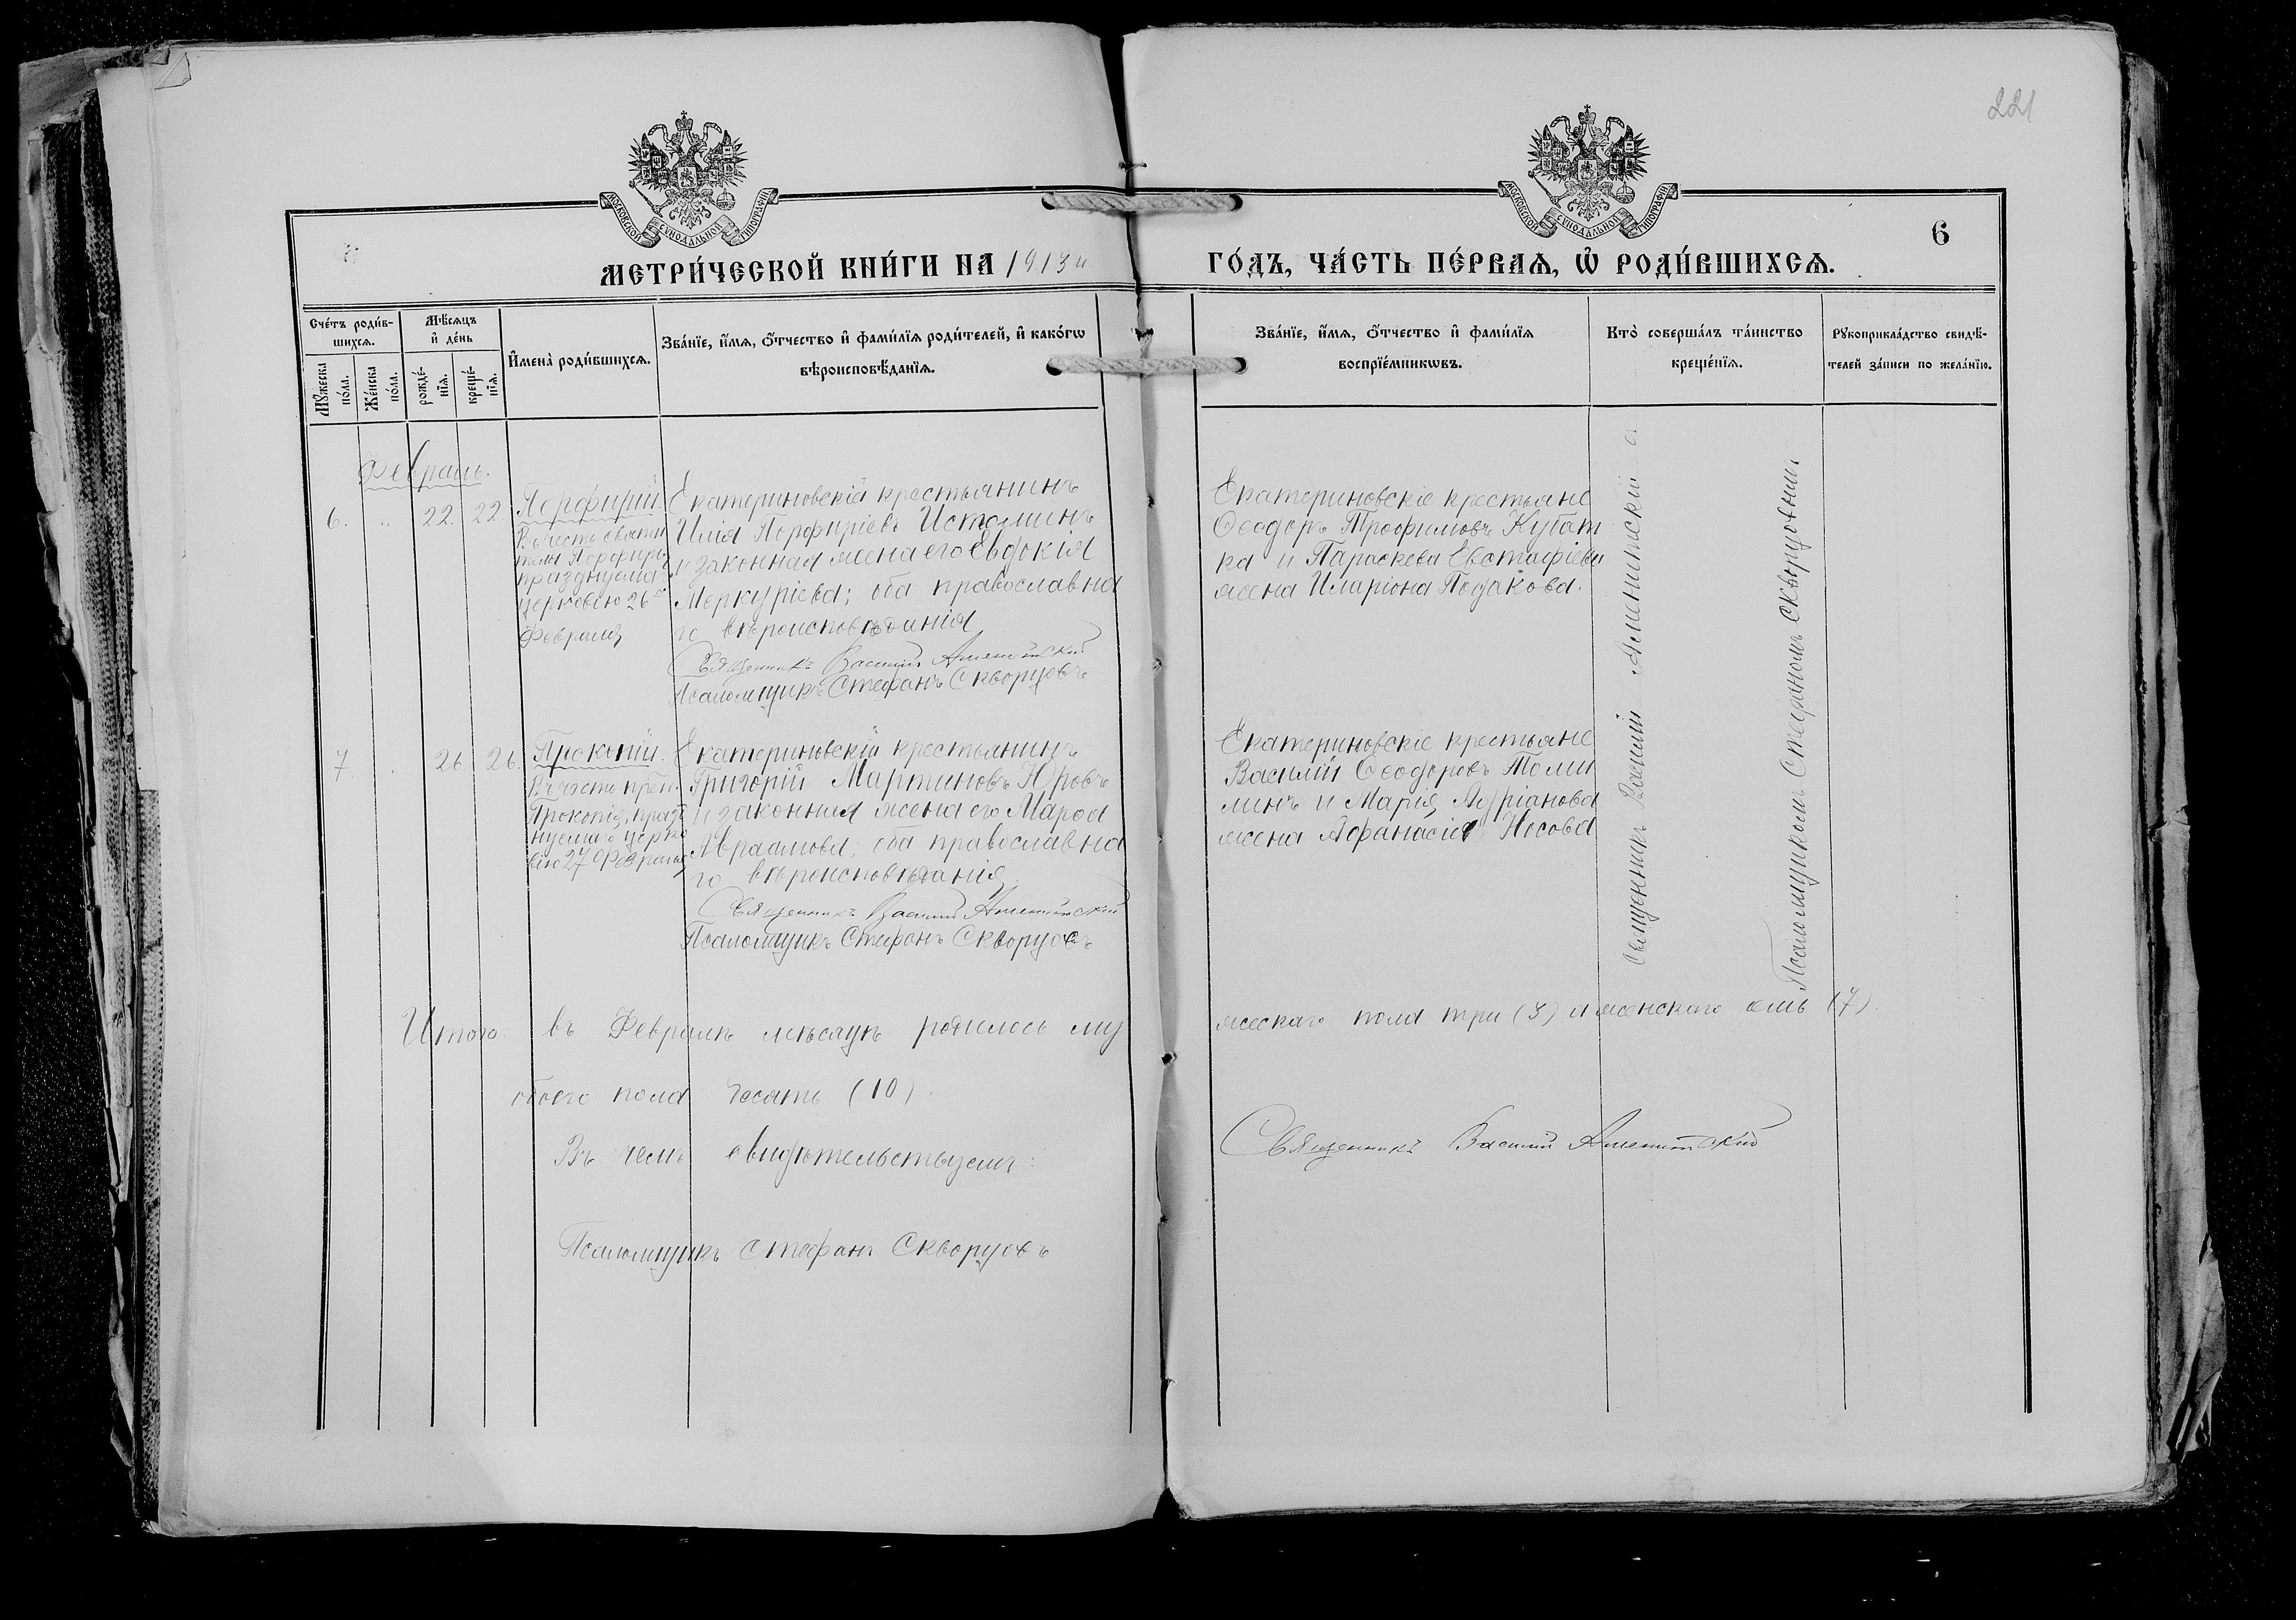 221
МОСКОВСКОЙ СѴНОДАЛЬНОЙ ТИПОГРАФІИ
МОСКОВСКОЙ СѴНОДАЛЬНОЙ ТИПОГРАФІИ
6
МЕТРИ́ЧЕСКОЙ КНИ́ГИ НА 1913й
ГО́ДЪ, ЧА́СТЬ ПЕ́РВАѦ, Ѡ҆ РОДИ́ВШИХСѦ.
Сче́тъ роди́в-
шихсѧ.
Мꙋ́жеска по́ла.
Же́нска по́ла.
Мѣ́сѧцъ
и҆ де́нь
рожде́-
нїѧ.
креще́-
нїѧ.
И҆мена̀ роди́вшихсѧ.
Зва́нїе, и҆́мѧ, ѻ҆́тчество и҆ фами́лїѧ роди́телей, и҆ како́гѡ
вѣроисповѣ́данїѧ.
Зва́нїе, и҆́мѧ, ѻ҆́тчество и҆ фами́лїѧ
воспрїе́мникѡвъ.
Кто̀ соверша́лъ та́инство
креще́нїѧ.
Рꙋкоприкла́дство свидѣ́-
телей за́писи по жела́нїю.
Февраль.
6. „ 22. 22
Порфирій.
Въ честь святи
теля Порфирі
празднуема
церковію 26го
Февраля
Екатериновскій крестьянинъ
Илія Порфиріевъ Истоминъ
и законная жена его Евдокія
Меркуріева; оба православна
го вѣроисповѣданія
Священникъ Василій Аменитскій
Псаломщикъ Стефанъ Скворцовъ
Екатериновскіе крестьяне
Ѳеодоръ Трофимовъ Кубат
ка и Параскева Евстафіева
жена Иларіона Подакова.
7. „ 26. 26.
Прокопій.
Въ честь преп.
Прокопія, празд
нуемаго церко
вію 27 Февраля
Екатериновскій крестьянинъ
Григорій Мартиновъ Юровъ
и законная жена его Марѳа
Авраамова; оба православна
го вѣроисповѣданія
Священникъ Василій Аменитскій
Псаломщикъ Стефанъ Скворцовъ
Екатериновскіе крестьяне
Василій Ѳеодоровъ Томи
линъ и Марія Адріанова
жена Аѳанасія Носова
Священникъ Василій Аменитскій с.
Псаломщикомъ Стефаномъ Скворцовымъ
Итого въ Февралѣ мѣсяцѣ родилось му
жескаго пола три (3) а женскаго семь (7).
обоего пола десять (10).
Въ чемъ свидѣтельствуемъ:
Священникъ Василій Аменитскій
Псаломщикъ Стефанъ Скворцовъ